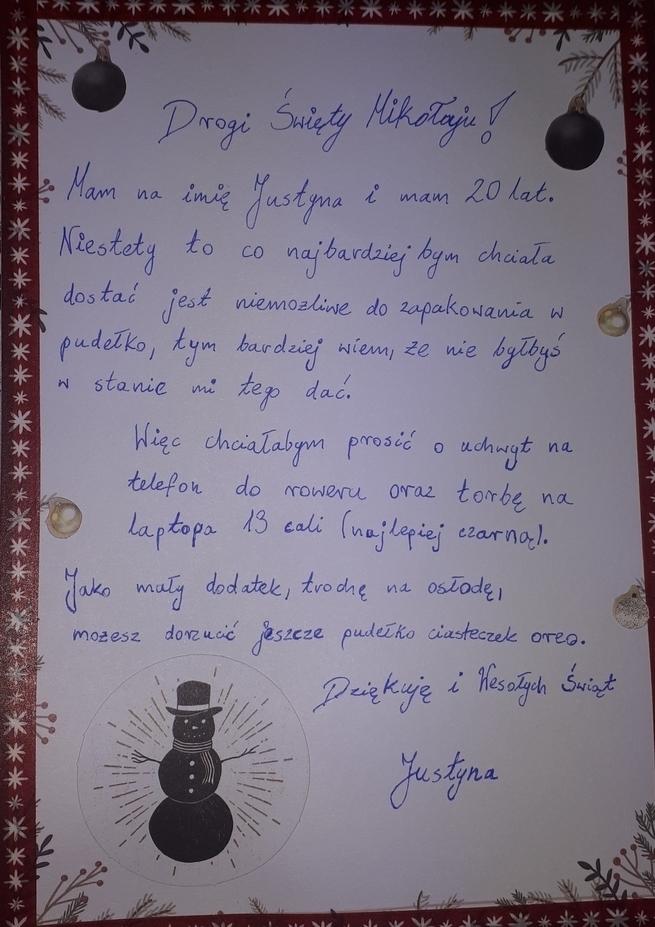 Drogi Święty Mikołaju!
Mam na imię Justyna i mam 20 lat.
Niestety to co najbardziej bym chciała
dostać jest niemożliwe do zapakowania w
pudełko, tym bardziej wiem, że nie byłbyś
w stanie mi tego dać.
Więc chciałabym prosić o uchwyt na
telefon do roweru oraz torbę na
laptopa 13 cali (najlepiej czarną).
Jako mały dodatek, trochę na osłodę,
możesz dorzucić jeszcze pudełko ciasteczek oreo.
Dziękuję i Wesołych Świąt
Justyna